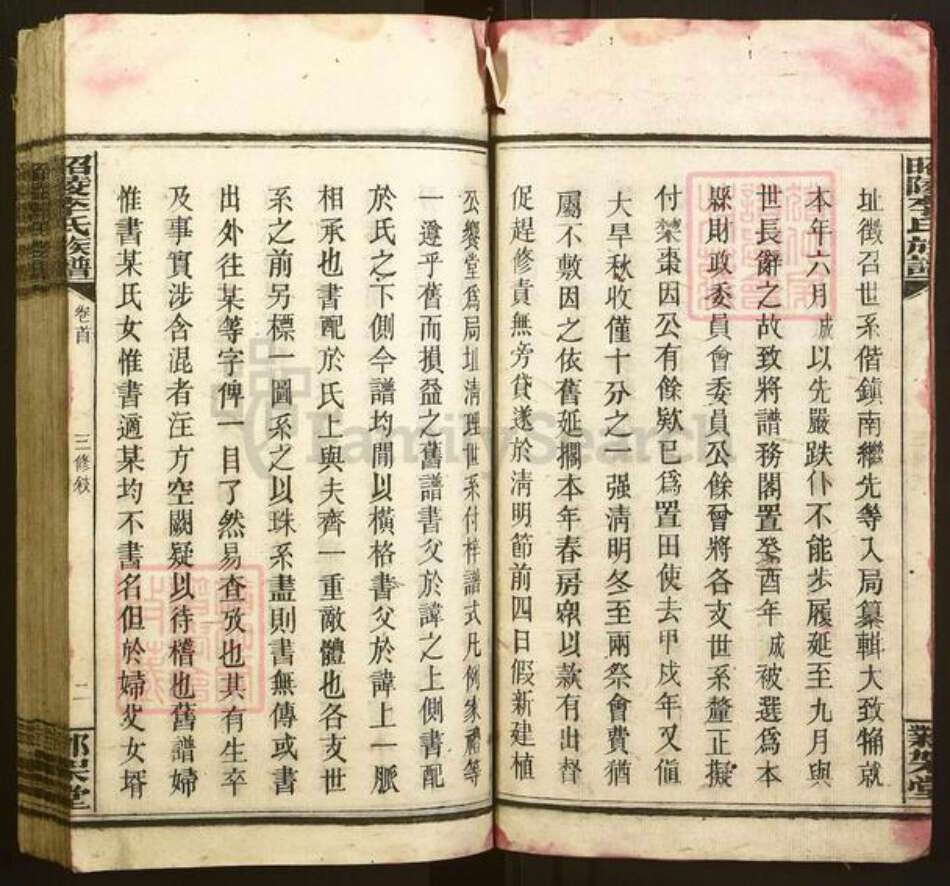 址徵召世系偕鎮南繼先等入局纂輯大致觕就
本年六月誠以先嚴跌仆不能步履延至九月與
世長辭之故致將譜務閣置癸酉年誠被選爲本
縣財政委員會委員公餘曾將各支世系釐正擬
付棃棗因公有餘欵已爲置田使去甲戌年又値
大旱秋收僅十分之二强淸明冬至兩祭會費猶
屬不敷因之依舊延擱本年春房衆以款有出督
促趕修責無旁貸遂於淸明節前四日假新建植
公饗堂爲局址淸理世系付梓譜式凡例家禮等
一遵乎舊而損益之舊譜書父於諱之上側書配
於氏之下側今譜均間以橫格書父於諱上一脈
相承也書配於氏上與夫齊一重敵體也各支世
系之前另標一圖系之以珠系盡則書無傳或書
出外往某等字俾一目了然易查攷也其有生卒
及事實涉含混者注方空闕疑以待稽也舊譜婦
惟書某氏女惟書適某均不書名但於婦父女壻
昭陵李氏族譜
卷首
三修敘
二
FamilySearch